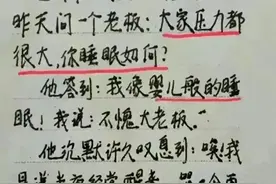 昨天问一个老板：大家压力都
很大，你睡眠如何？
他答到：我像婴儿般的睡
眠！我说：不愧大老板。"
他沉默许久叹息到：唤我